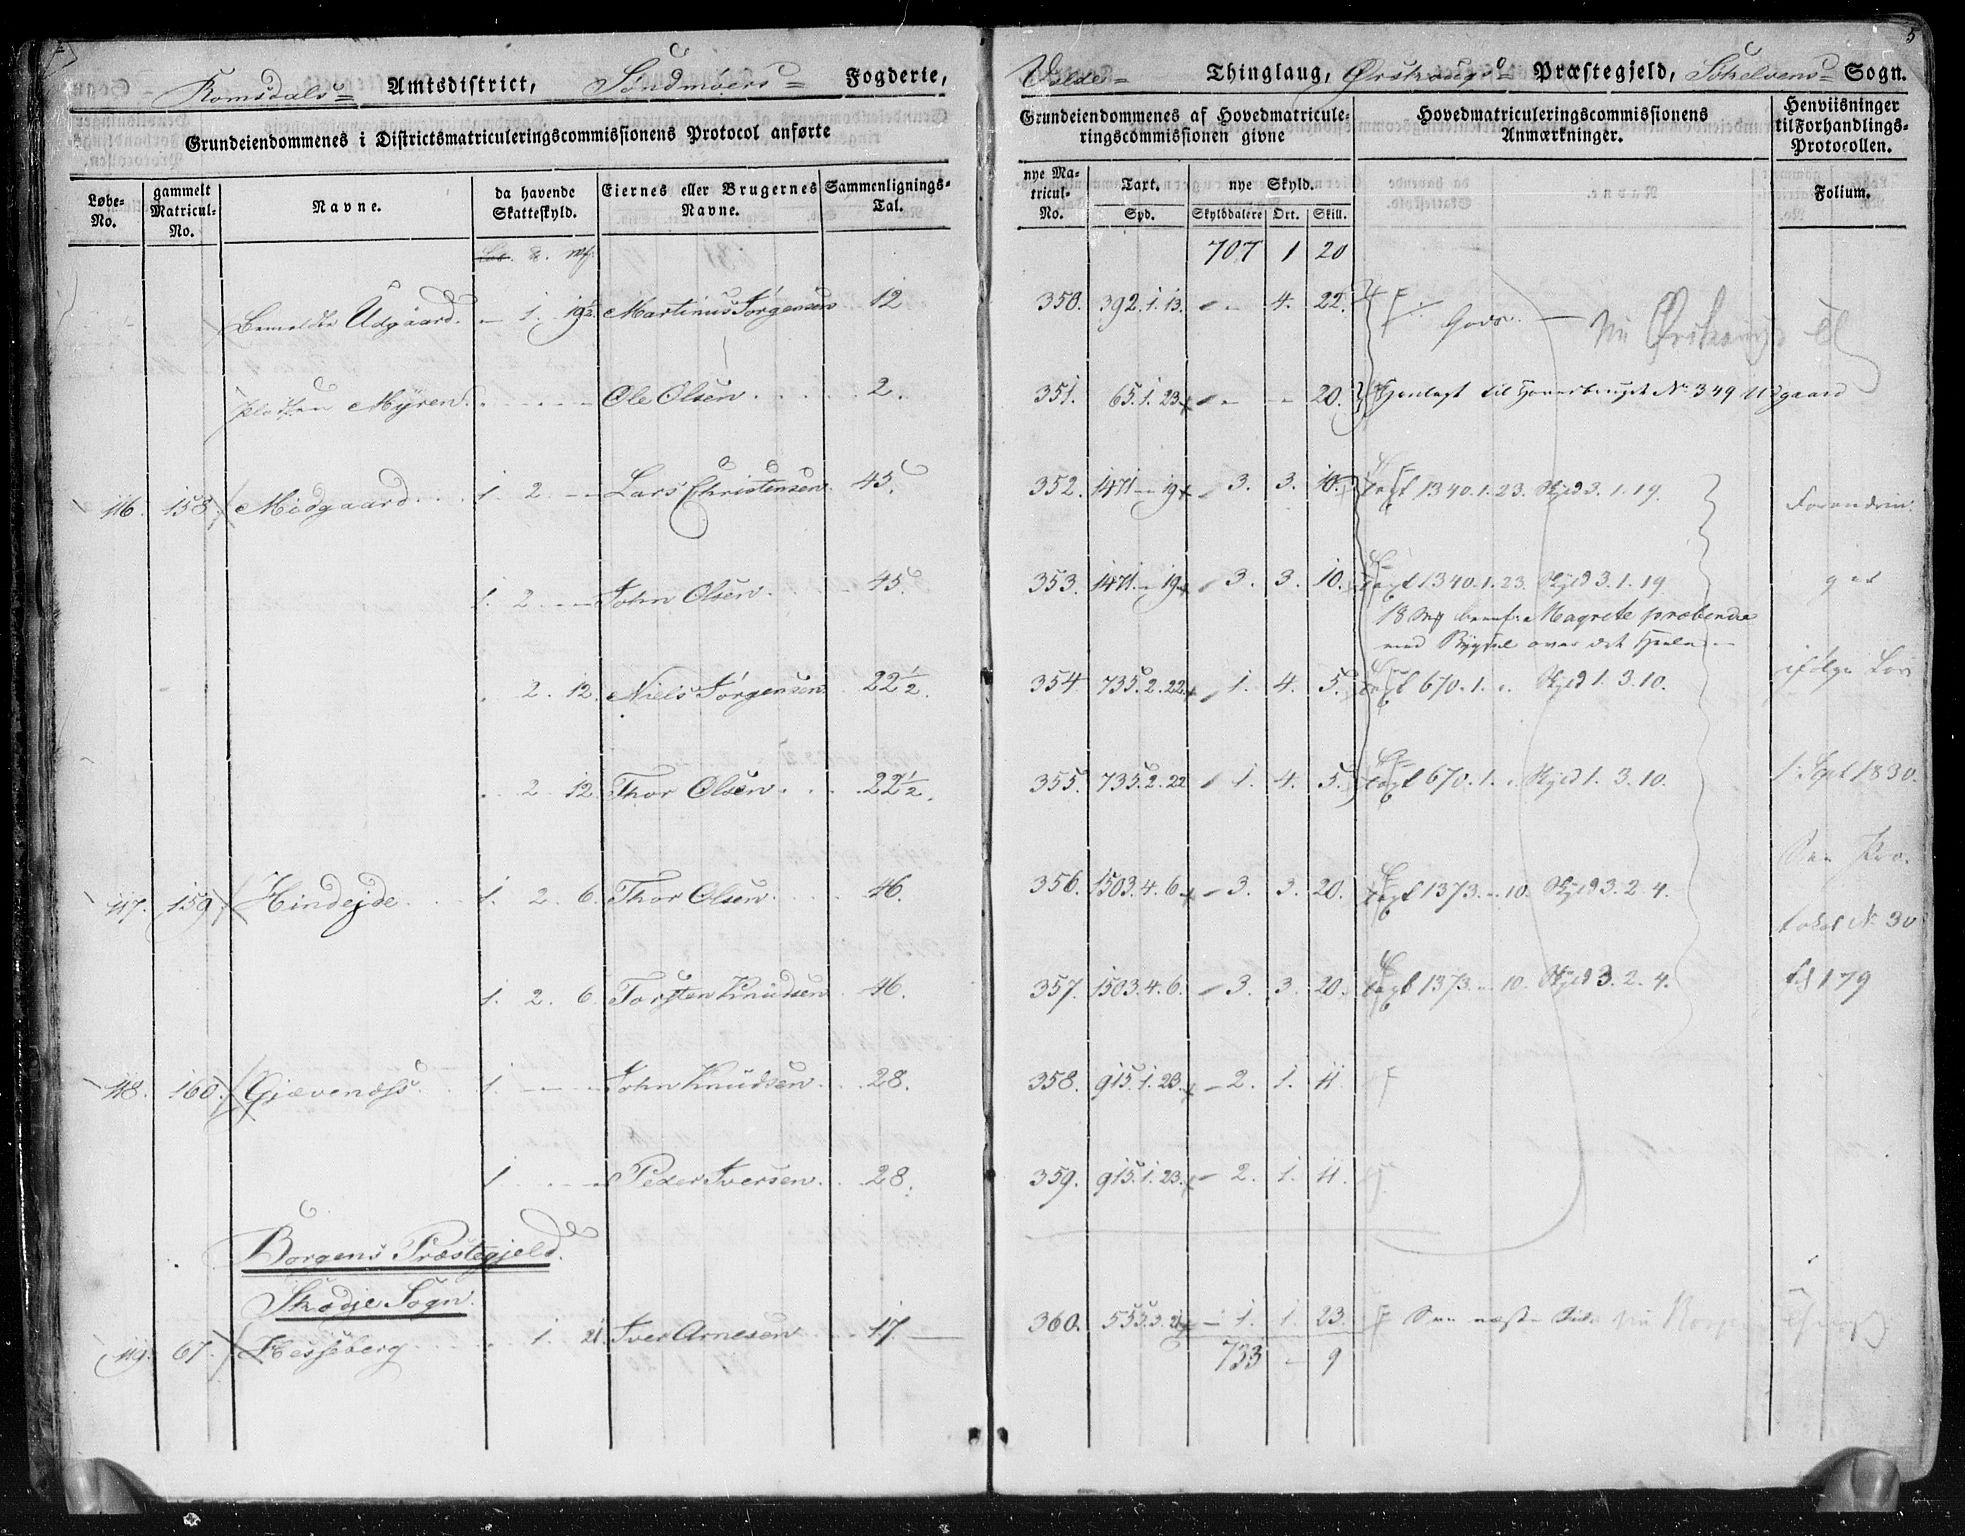 5
Romsdals Amtsdistrict, Søndmøers Fogderie,
Grundeiendommenes i Districtsmatriculeringscommissionens Protocol anførte
Løbe-No. gammelt Matricul-No. Navne. da havende Skatteskyld. Eiernes eller Brugernes Navne. Sammenlignings-Tal.
Bemeldte Udgaard. - 1. 19½ Martinus Jørgensen 12.
pladsen Myren. Ole Olsen 2.
116. 158. Midgaard 1. 2. - Lars Christensen 45.
1. 2. - John Olsen. 45.
. 2. 12. Niels Jørgensen 22½.
. 2. 12. Thor Olsen 22½.
117. 159. Hindejde 1. 2. 6. Thor Olsen 46.
1. 2. 6. Torsten Knudsen 46.
118. 160. Gjævenæss 1. - - John Knudsen 28.
1. - - Peder Iversen 28.
Borgens Præstegjeld.
Skodje Sogn.
119. 67. Hesseberg . 1. 21. Iver Arnesen 17
Volde Thinglaug, Ørskougs Præstegjeld, Søkelvens Sogn.
Grundeiendommenes af Hovedmatriculeringscommissionen givne
Hovedmatriculeringscommissionens Anmærkninger.
Henviisninger til Forhandlings-Protocollen.
nye Matricul-No. Taxt. Spd. nye Skyld. Skylddalere Ort. Skill. Folium.
707 1 20
350. 392.1.13. - 4. 22. Gods. Nu Ørskoug
351. 65.1.23. - - 20. Henlagt til No 349 Udgaard
352. 1471 - 19. 3. 3. 10. Taxt 1340.1.23. Skyld 3.1.19. Forandrin-
353. 1471 - 19. 3. 3. 10. Taxt 1340.1.23. Skyld 3.1.19. ger
18 Magrete præbende
med Bygsel over det Hele
354 735.2.22. 1. 4. 5. Taxt 670.1. Skyld 1.3.10. ifølge Lov
355. 735.2.22 1. 4. 5. Taxt 670.1. Skyld 1.3.10. 1 Sept 1830.
356. 1503.4.6. 3. 3. 20. Taxt 1373. - 10. Skyld 3.2.4. See Pro-
tokol No 30
357. 1503.4.6. 3. 3. 20. Taxt 1373. - 10. Skyld 3.2.4. fol 179
358. 915.1.23. 2. 1. 11.
359. 915.1.23. 2. 1. 11.
360. 555.3.21 1. 1. 23. See næste Side Nu Borgen
733 - 9